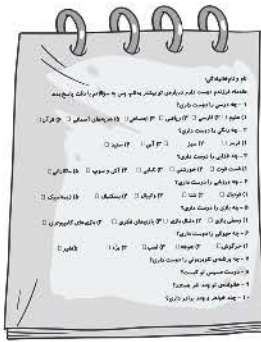 نام و نام‌خانوادگی:
مقدمه: فرزندم دوست دارم درباره‌ی تو بیشتر بدانم. پس به سؤالاتم با دقت پاسخ بده.
۱- چه درسی را دوست داری؟
۱) علوم □ ۲) فارسی □ ۳) ریاضی □ ۴) اجتماعی □ ۵) هدیه‌های آسمانی □ ۶) قرآن □
۲- چه رنگی را دوست داری؟
۱) قرمز □ ۲) سبز □ ۳) آبی □ ۴) سفید □
۳- چه غذایی را دوست داری؟
۱) فست فود □ ۲) خورشتی □ ۳) کبابی □ ۴) آش و سوپ □ ۵) سالادی □
۴- چه ورزشی را دوست داری؟
۱) فوتبال □ ۲) شنا □ ۳) والیبال □ ۴) بسکتبال □ ۵) ژیمناستیک □
۵- چه بازی را دوست داری؟
۱) وسطی بازی □ ۲) دنبال بازی □ ۳) بازی‌های فکری □ ۴) بازی‌های کامپیوتری □
۶- چه حیوانی را دوست داری؟
۱) خرگوش □ ۲) جوجه □ ۳) اسب □ ۴) بره □ ۵) شیر □
۷- چه برنامه‌ی تلویزیونی را دوست داری؟
۸- دوست صمیمی تو کیست؟
۹- خانواده‌ی تو چند نفر هستند؟
۱۰- چند خواهر و چند برادر داری؟